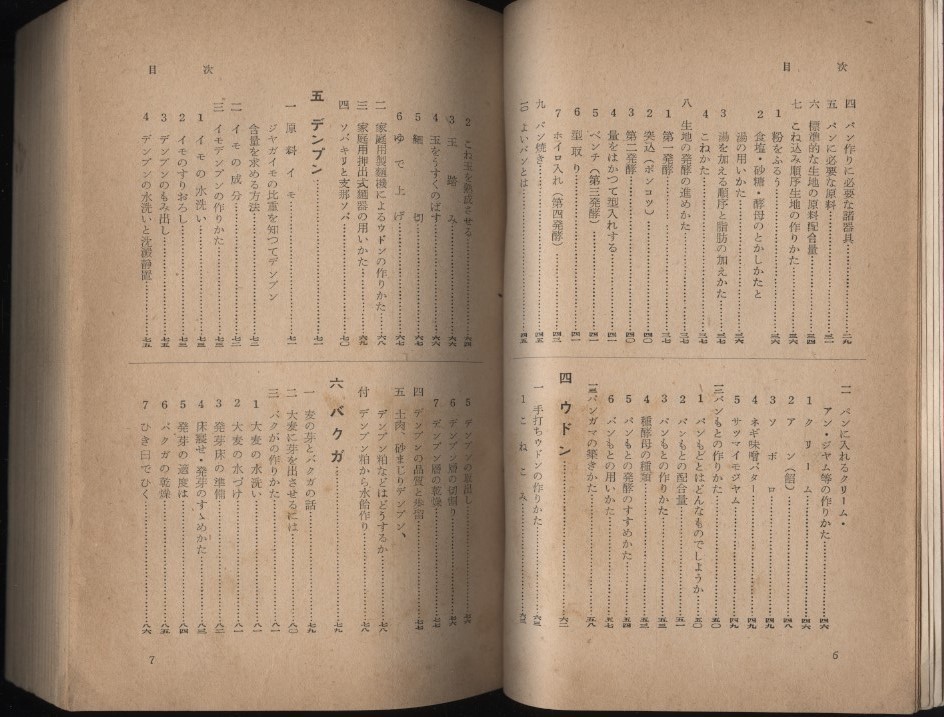 目次
四 パン作りに必要な諸器具……二九
五 パン作りに必要な原料……三一
六 標準的な生地の原料配合量……三四
七 こね込み順序生地の作りかた……三六
1 粉をふるう……三六
2 食塩・砂糖・酵母のとかしかたと
湯の用いかた……三六
3 湯を加える順序と脂肪の加えかた……三七
4 こねかた……三七
八 生地の発酵の進めかた……三七
1 第一発酵……三七
2 突込（ポンコツ）……四〇
3 第二発酵……四〇
4 量をはかつて型入れする……四〇
5 ベンチ（第三発酵）……四一
6 型取り……四一
7 ホイロ入れ（第四発酵）……四三
九 パン焼き……四五
一〇 よいパンとは……四五
一一 パンに入れるクリーム・
アン・ジヤム等の作りかた……四六
1 クリーム……四六
2 アン（餡）……四八
3 ソボロ……四九
4 ネギ味噌バター……四九
5 サツマイモジヤム……四九
一二 パンもとの作りかた……五〇
1 パンもととはどんなものでしようか……五〇
2 パンもとの配合量……五一
3 パンもとの作りかた……五三
4 種酵母の種類……五三
5 パンもとの発酵のすすめかた……五四
6 パンもとの用いかた……五六
一三 パンガマの築きかた……五八
四 ウドン……六二
一 手打ちウドンの作りかた……六三
1 こねこみ……六三
6
目次
2 こね玉を熟成させる……六四
3 玉踏み……六六
4 玉をうすくのばす……六六
5 麺切……六七
6 ゆで上げ……六七
二 家庭用製麺機によるウドンの作りかた……六八
三 家庭用押出式麺器の用いかた……六九
四 ソバキリと支那ソバ……七〇
五 デンプン……七一
一 原料イモ……七一
ジヤガイモの比重を知つてデンプン
含量を求める方法……七二
二 イモの成分……七二
三 イモデンプンの作りかた……七三
1 イモの水洗い……七三
2 イモのすりおろし……七三
3 デンプンのもみ出し……七五
4 デンプンの水洗いと沈澱静置……七五
5 デンプンの取出し……七六
6 デンプン層の切削り……七六
7 デンプン層の乾燥……七七
四 デンプンの品質と歩留……七七
五 土肉、砂まじりデンプン、
デンプン粕などはどうするか……七八
付 デンプン粕から水飴作り……七八
六 バクガ……七九
一 麦の芽とバクガの話……七九
二 大麦に芽を出させるには……八〇
三 バクガの作りかた……八一
1 大麦の水洗い……八一
2 大麦の水づけ……八一
3 発芽床の準備……八二
4 床寝せ・発芽のすゝめかた……八三
5 発芽の適度は……八四
6 バクガの乾燥……八五
7 ひき臼でひく……八六
7